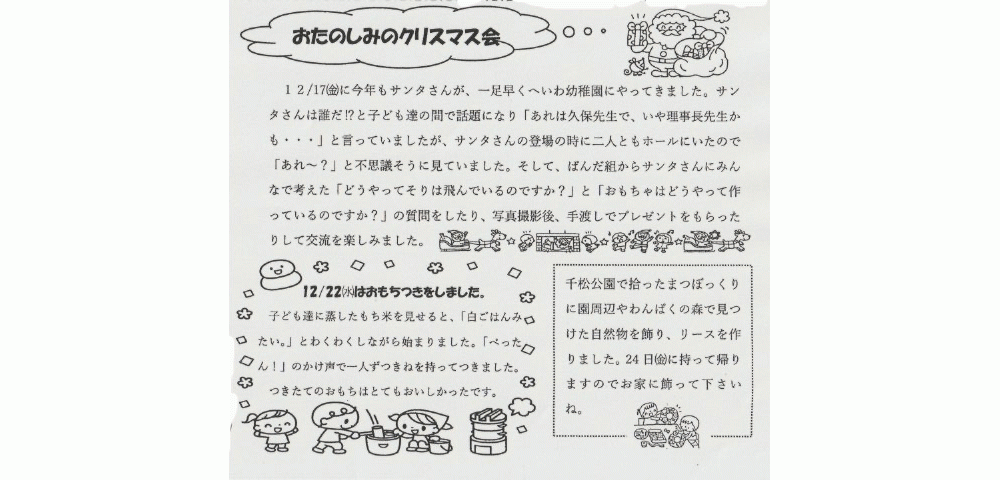 おたのしみのクリスマス会
１２/17㈮に今年もサンタさんが、一足早くへいわ幼稚園にやってきました。サン
タさんは誰だ!?と子ども達の間で話題になり「あれは久保先生で、いや理事長先生か
も・・・」と言っていましたが、サンタさんの登場の時に二人ともホールにいたので
「あれ～？」と不思議そうに見ていました。そして、ぱんだ組からサンタさんにみん
なで考えた「どうやってそりは飛んでいるのですか？」と「おもちゃはどうやって作
っているのですか？」の質問をしたり、写真撮影後、手渡しでプレゼントをもらった
りして交流を楽しみました。
12/22㈬はおもちつきをしました。
子ども達に蒸したもち米を見せると、「白ごはんみ
たい。」とわくわくしながら始まりました。「ぺった
ん！」のかけ声で一人ずつきねを持ってつきました。
つきたてのおもちはとてもおいしかったです。
千松公園で拾ったまつぼっくり
に園周辺やわんぱくの森で見つ
けた自然物を飾り、リースを作
りました。24日㈮に持って帰り
ますのでお家に飾って下さい
ね。